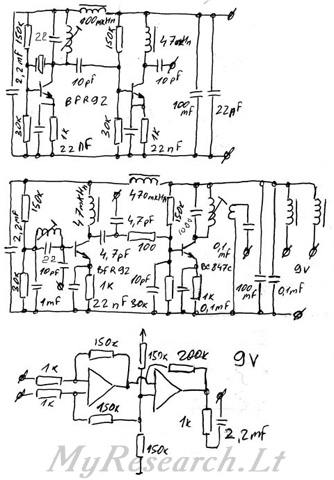 100mkHn
150k
22
150k
47mkHn
2,2mf
10pf
10pf
BFR92
100
mf
22nf
30k
1k
30k
1k
22nf
22nf
470mkHn
150k
47mkHn
4,7pf
150k
1000
2,2mf
100
0,1
mf
22
4,7pf
10pf
BFR92
10pf
BC847c
100
mf
0,1mf
9v
30k
1k
1k
1mf
22nf
30k
0,1mf
150k
150k
200k
9v
1k
1k
150k
1k
2,2mf
150k
MyResearch.Lt